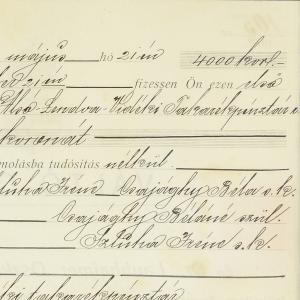 május hó 21 én 4000 kor.
fizessen Ön ezen első
Alsó-Lendva-Vidéki Takarékpénztár
koronát
molásba tudósítás nélkül.
Sztuha Irén Csajághy Béla s.k.
Csajághy Béláné szül.
Sztuha Irén s.k.
takarékpénztár